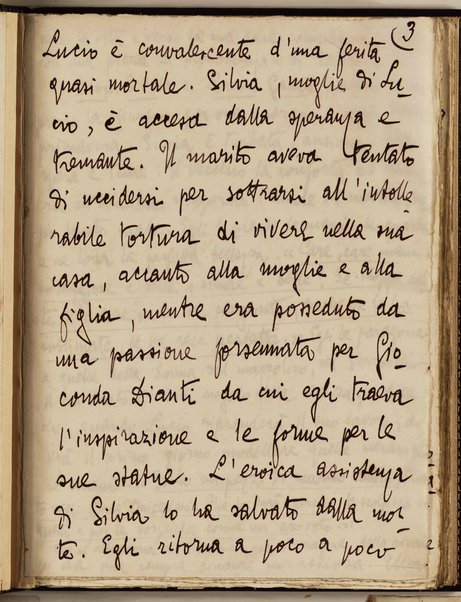 3
Lucio è convalescente d'una ferita
quasi mortale. Silvia, moglie di Lu-
cio, è accesa dalla speranza e
tremante. Il marito aveva tentato
di uccidersi per sottrarsi all'intolle-
rabile tortura di vivere nella sua
casa, accanto alla moglie e alla
figlia, mentre era posseduto da
una passione forsennata per Gio-
conda Dianti da cui egli traeva
l'inspirazione e le forme per le
sue statue. L'eroica assistenza
di Silvia lo ha salvato dalla mor-
te. Egli ritorna a poco a poco